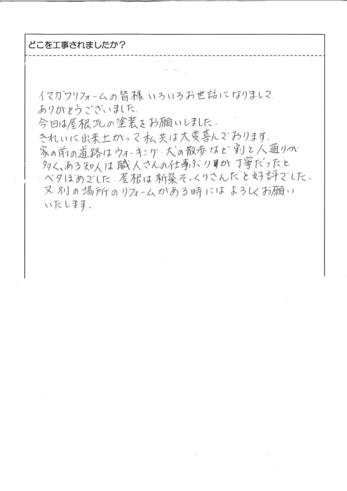 どこを工事されましたか？
イマガワリフォームの皆様 いろいろお世話になりまして
ありがとうございました。
今回は屋根瓦の塗装をお願いしました。
きれいに出来上がって私共は大変喜んでおります。
家の前の道路はウォーキング・犬の散歩など割と人通りが
多く、ある知人は職人さんの仕事ぶりが丁寧だったと
ベタほめでした。屋根は新築そっくりさんだと好評でした。
又別の場所のリフォームがある時にはよろしくお願い
いたします。